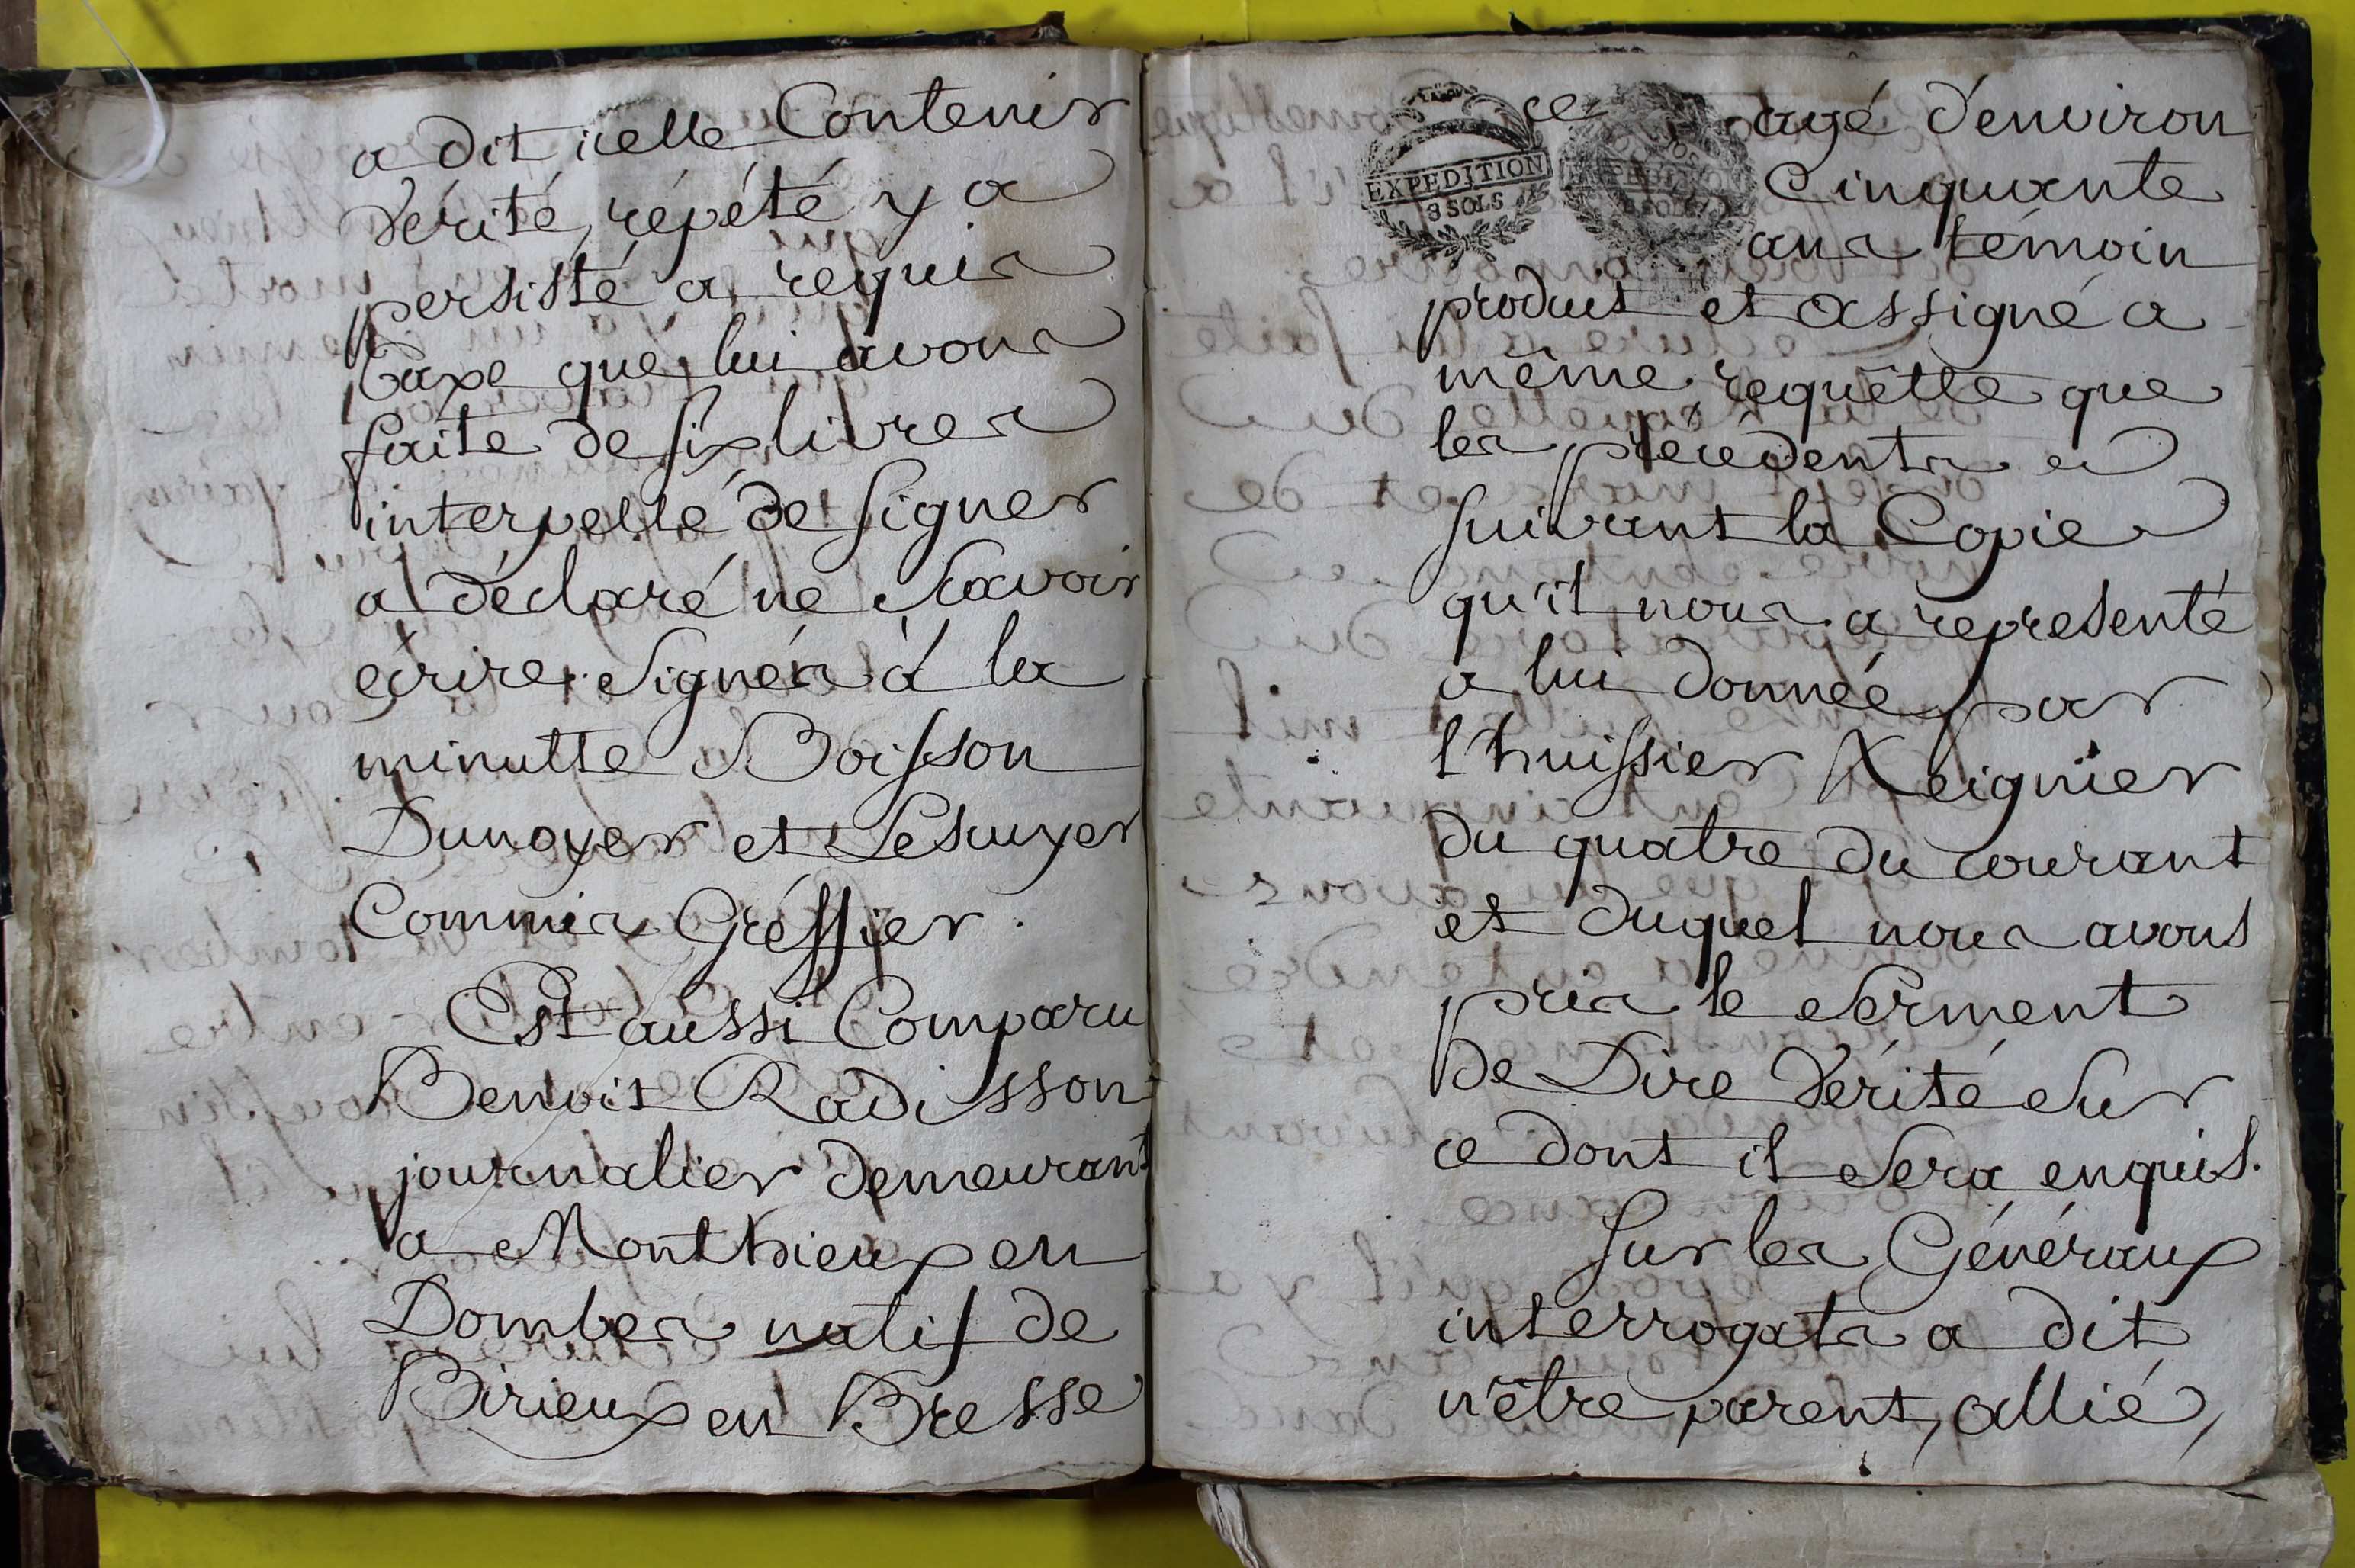 a dit icelle Contenir
vérité, répété y a
persisté a requis
taxe que lui avons
faite de six livres
interpellé de signer
a déclaré ne sçavoir
ecrire. Signés à la
minutte Boisson
Dunoyer et Lescuyer
Commis Gréffier.
Est aussi Comparu
Benoit Radisson
journalier demeurant
a Monthieux en
Dombes natif de
Birieux en Bresse
agé d'environ
EXPEDITION
3 SOLS
Cinquante
ans témoin
produit et assigné a
même requêtte que
les précédents et
suivant la Copie
qu'il nous a representé
a lui donnée par
l'huissier Reignier
du quatre du courant
et duquel nous avons
pris le serment
de Dire vérité sur
ce dont il sera enquis.
Sur les Généraux
interrogats a dit
n'être parent, allié,